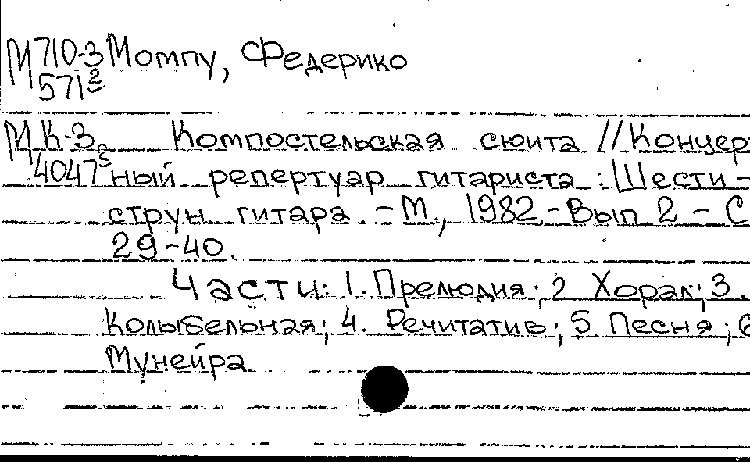 М710-3 Момпу, Федерико
571²
М К-3 Компостельская сюита // Концер
4047⁵ ный репертуар гитариста : Шести-
струн. гитара. - М., 1982.- Вып 2 - С
29-40.
Части: 1. Прелюдия; 2 Хорал; 3.
Колыбельная; 4. Речитатив; 5 Песня; 6
Мунейра